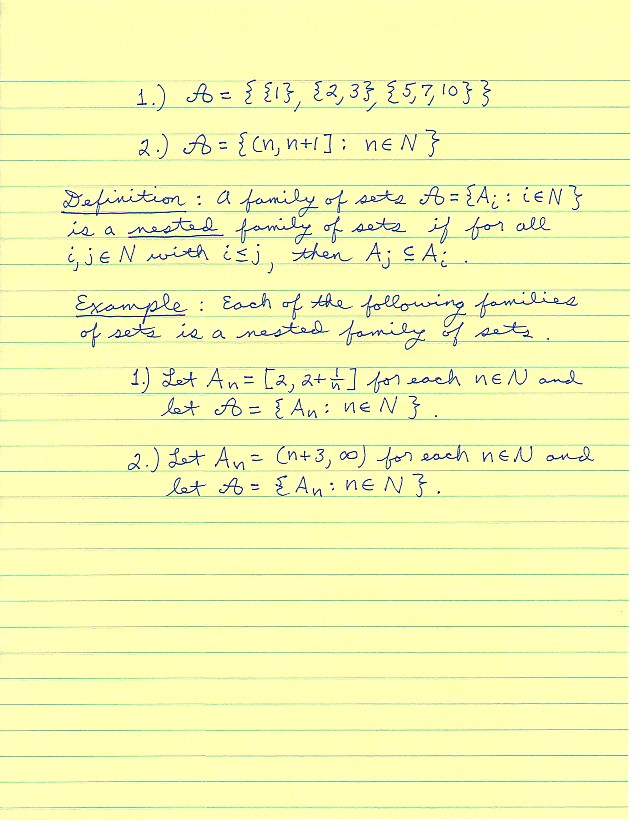 1.) 𝒜 = { {1}, {2,3}, {5,7,10} }
2.) 𝒜 = {(n, n+1] : n∈N }
Definition : A family of sets 𝒜 = {Aᵢ : i∈N }
is a nested family of sets if for all
i, j ∈ N with i≤j, then Aⱼ ⊆ Aᵢ .
Example : Each of the following families
of sets is a nested family of sets .
1.) Let Aₙ = [2, 2+ 1/n ] for each n∈N and
let 𝒜 = { Aₙ : n∈N } .
2.) Let Aₙ = (n+3, ∞) for each n∈N and
let 𝒜 = { Aₙ : n∈N } .